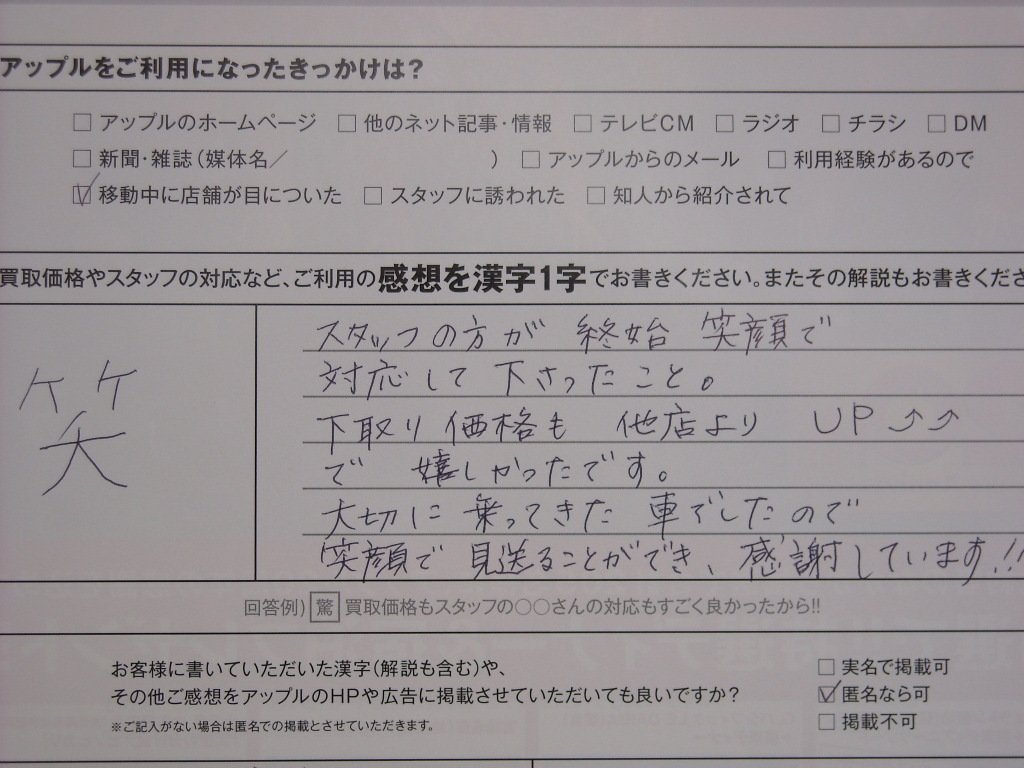 アップルをご利用になったきっかけは？
□ アップルのホームページ □ 他のネット記事・情報 □ テレビCM □ ラジオ □ チラシ □ DM
□ 新聞・雑誌（媒体名／　　　　　　　　　） □ アップルからのメール □ 利用経験があるので
☑ 移動中に店舗が目についた □ スタッフに誘われた □ 知人から紹介されて
買取価格やスタッフの対応など、ご利用の感想を漢字1字でお書きください。またその解説もお書きくださ
笑
スタッフの方が 終始 笑顔で
対応して 下さったこと。
下取り 価格も 他店より UP⤴⤴
で 嬉しかったです。
大切に 乗ってきた 車でしたので
笑顔で 見送ることができ、感謝しています!!
回答例） 驚 買取価格もスタッフの○○さんの対応もすごく良かったから!!
お客様に書いていただいた漢字（解説も含む）や、
その他ご感想をアップルのHPや広告に掲載させていただいても良いですか？
※ご記入がない場合は匿名での掲載とさせていただきます。
□ 実名で掲載可
☑ 匿名なら可
□ 掲載不可